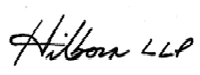 Hilborn LLP